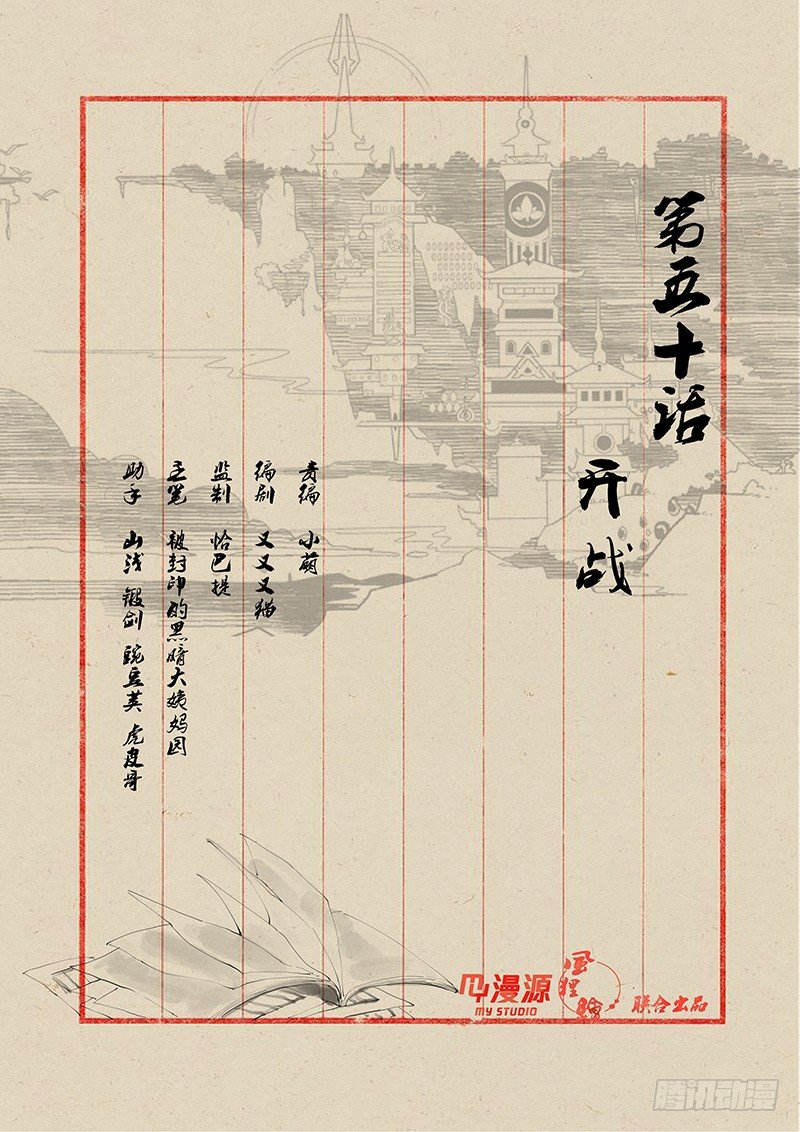 第五十话
开战
责编 小萌
编剧 又又又猫
监制 恰巴提
主笔 被封印的黑暗大姨妈园
助手 山浅 锻剑 豌豆荚 虎皮哥
漫源
MY STUDIO
联合出品
腾讯动漫